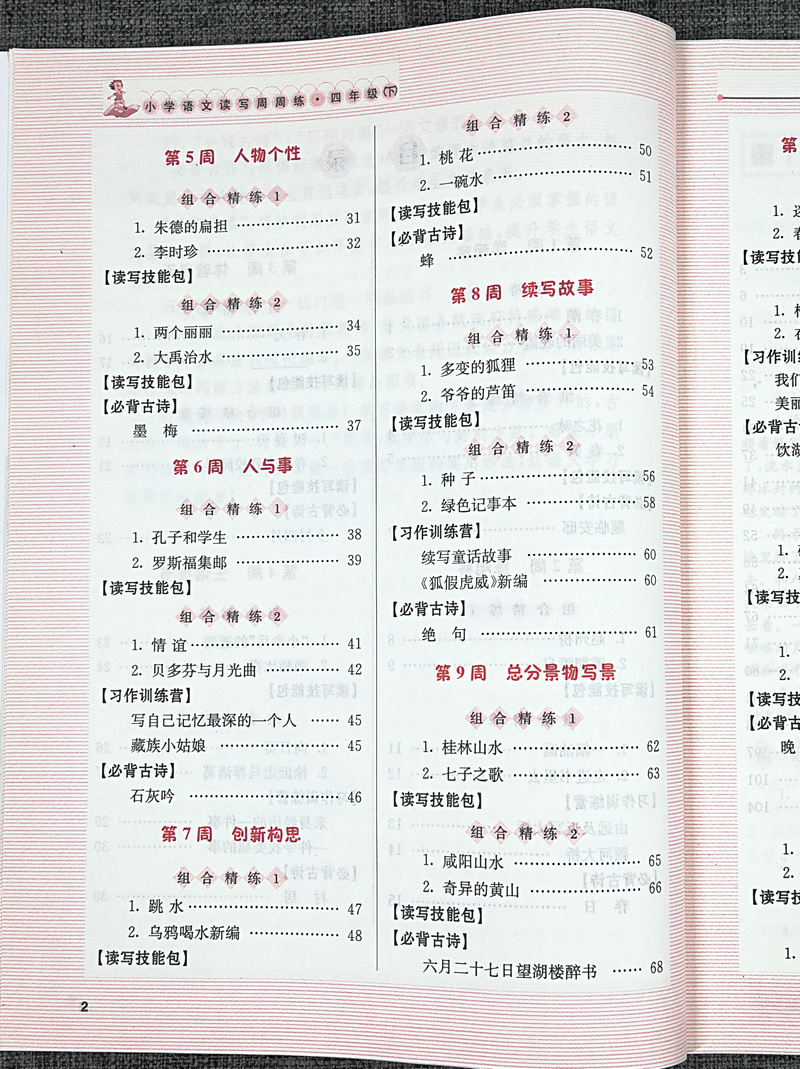 小学语文读写周周练·四年级(下)
第5周 人物个性
组合精练1
1. 朱德的扁担 ………………… 31
2. 李时珍 ………………… 32
【读写技能包】
组合精练2
1. 两个丽丽 ………………… 34
2. 大禹治水 ………………… 35
【读写技能包】
【必背古诗】
墨 梅 ………………… 37
第6周 人与事
组合精练1
1. 孔子和学生 ………………… 38
2. 罗斯福集邮 ………………… 39
【读写技能包】
组合精练2
1. 情 谊 ………………… 41
2. 贝多芬与月光曲 ………………… 42
【习作训练营】
写自己记忆最深的一个人 …… 45
藏族小姑娘 ………………… 45
【必背古诗】
石灰吟 ………………… 46
第7周 创新构思
组合精练1
1. 跳 水 ………………… 47
2. 乌鸦喝水新编 ………………… 48
【读写技能包】
组合精练2
1. 桃 花 ………………… 50
2. 一碗水 ………………… 51
【读写技能包】
【必背古诗】
蜂 ………………… 52
第8周 续写故事
组合精练1
1. 多变的狐狸 ………………… 53
2. 爷爷的芦笛 ………………… 54
【读写技能包】
组合精练2
1. 种 子 ………………… 56
2. 绿色记事本 ………………… 58
【习作训练营】
续写童话故事 ………………… 60
《狐假虎威》新编 ………………… 60
【必背古诗】
绝 句 ………………… 61
第9周 总分景物写景
组合精练1
1. 桂林山水 ………………… 62
2. 七子之歌 ………………… 63
【读写技能包】
组合精练2
1. 咸阳山水 ………………… 65
2. 奇异的黄山 ………………… 66
【读写技能包】
【必背古诗】
六月二十七日望湖楼醉书 …… 68
2
第
1.
2.
【读写技能包
1.
2.
【习作训练
我们
美丽
【必背古诗
饮湖
2.
【读写技
1.
2.
【读写技
【必背古
晚
1.
2.
【读写技
1.